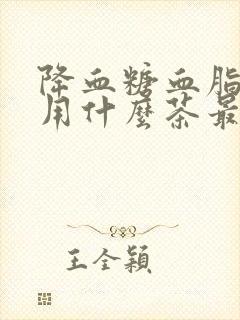 降血糖血脂
用什麼茶最
王全穎